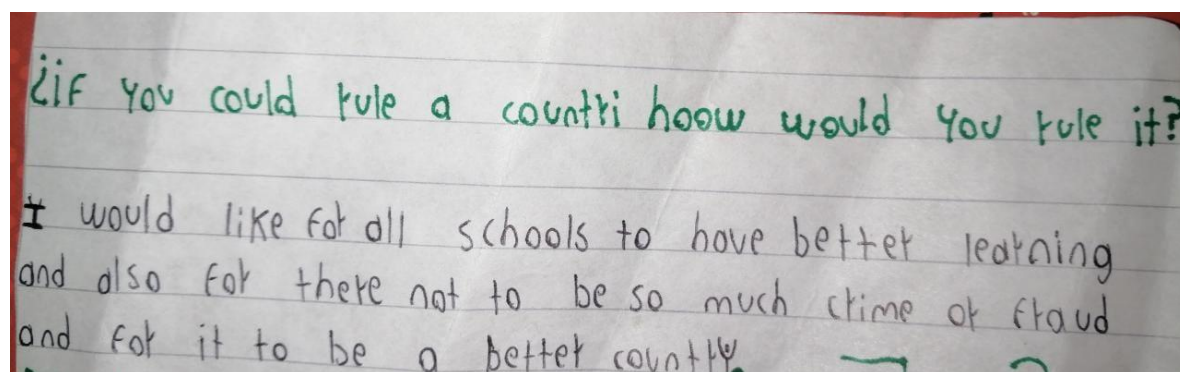 ¿if you could rule a countri hoow would you rule it?
I would like for all schools to have better learning
and also for there not to be so much crime or fraud
and for it to be a better country.